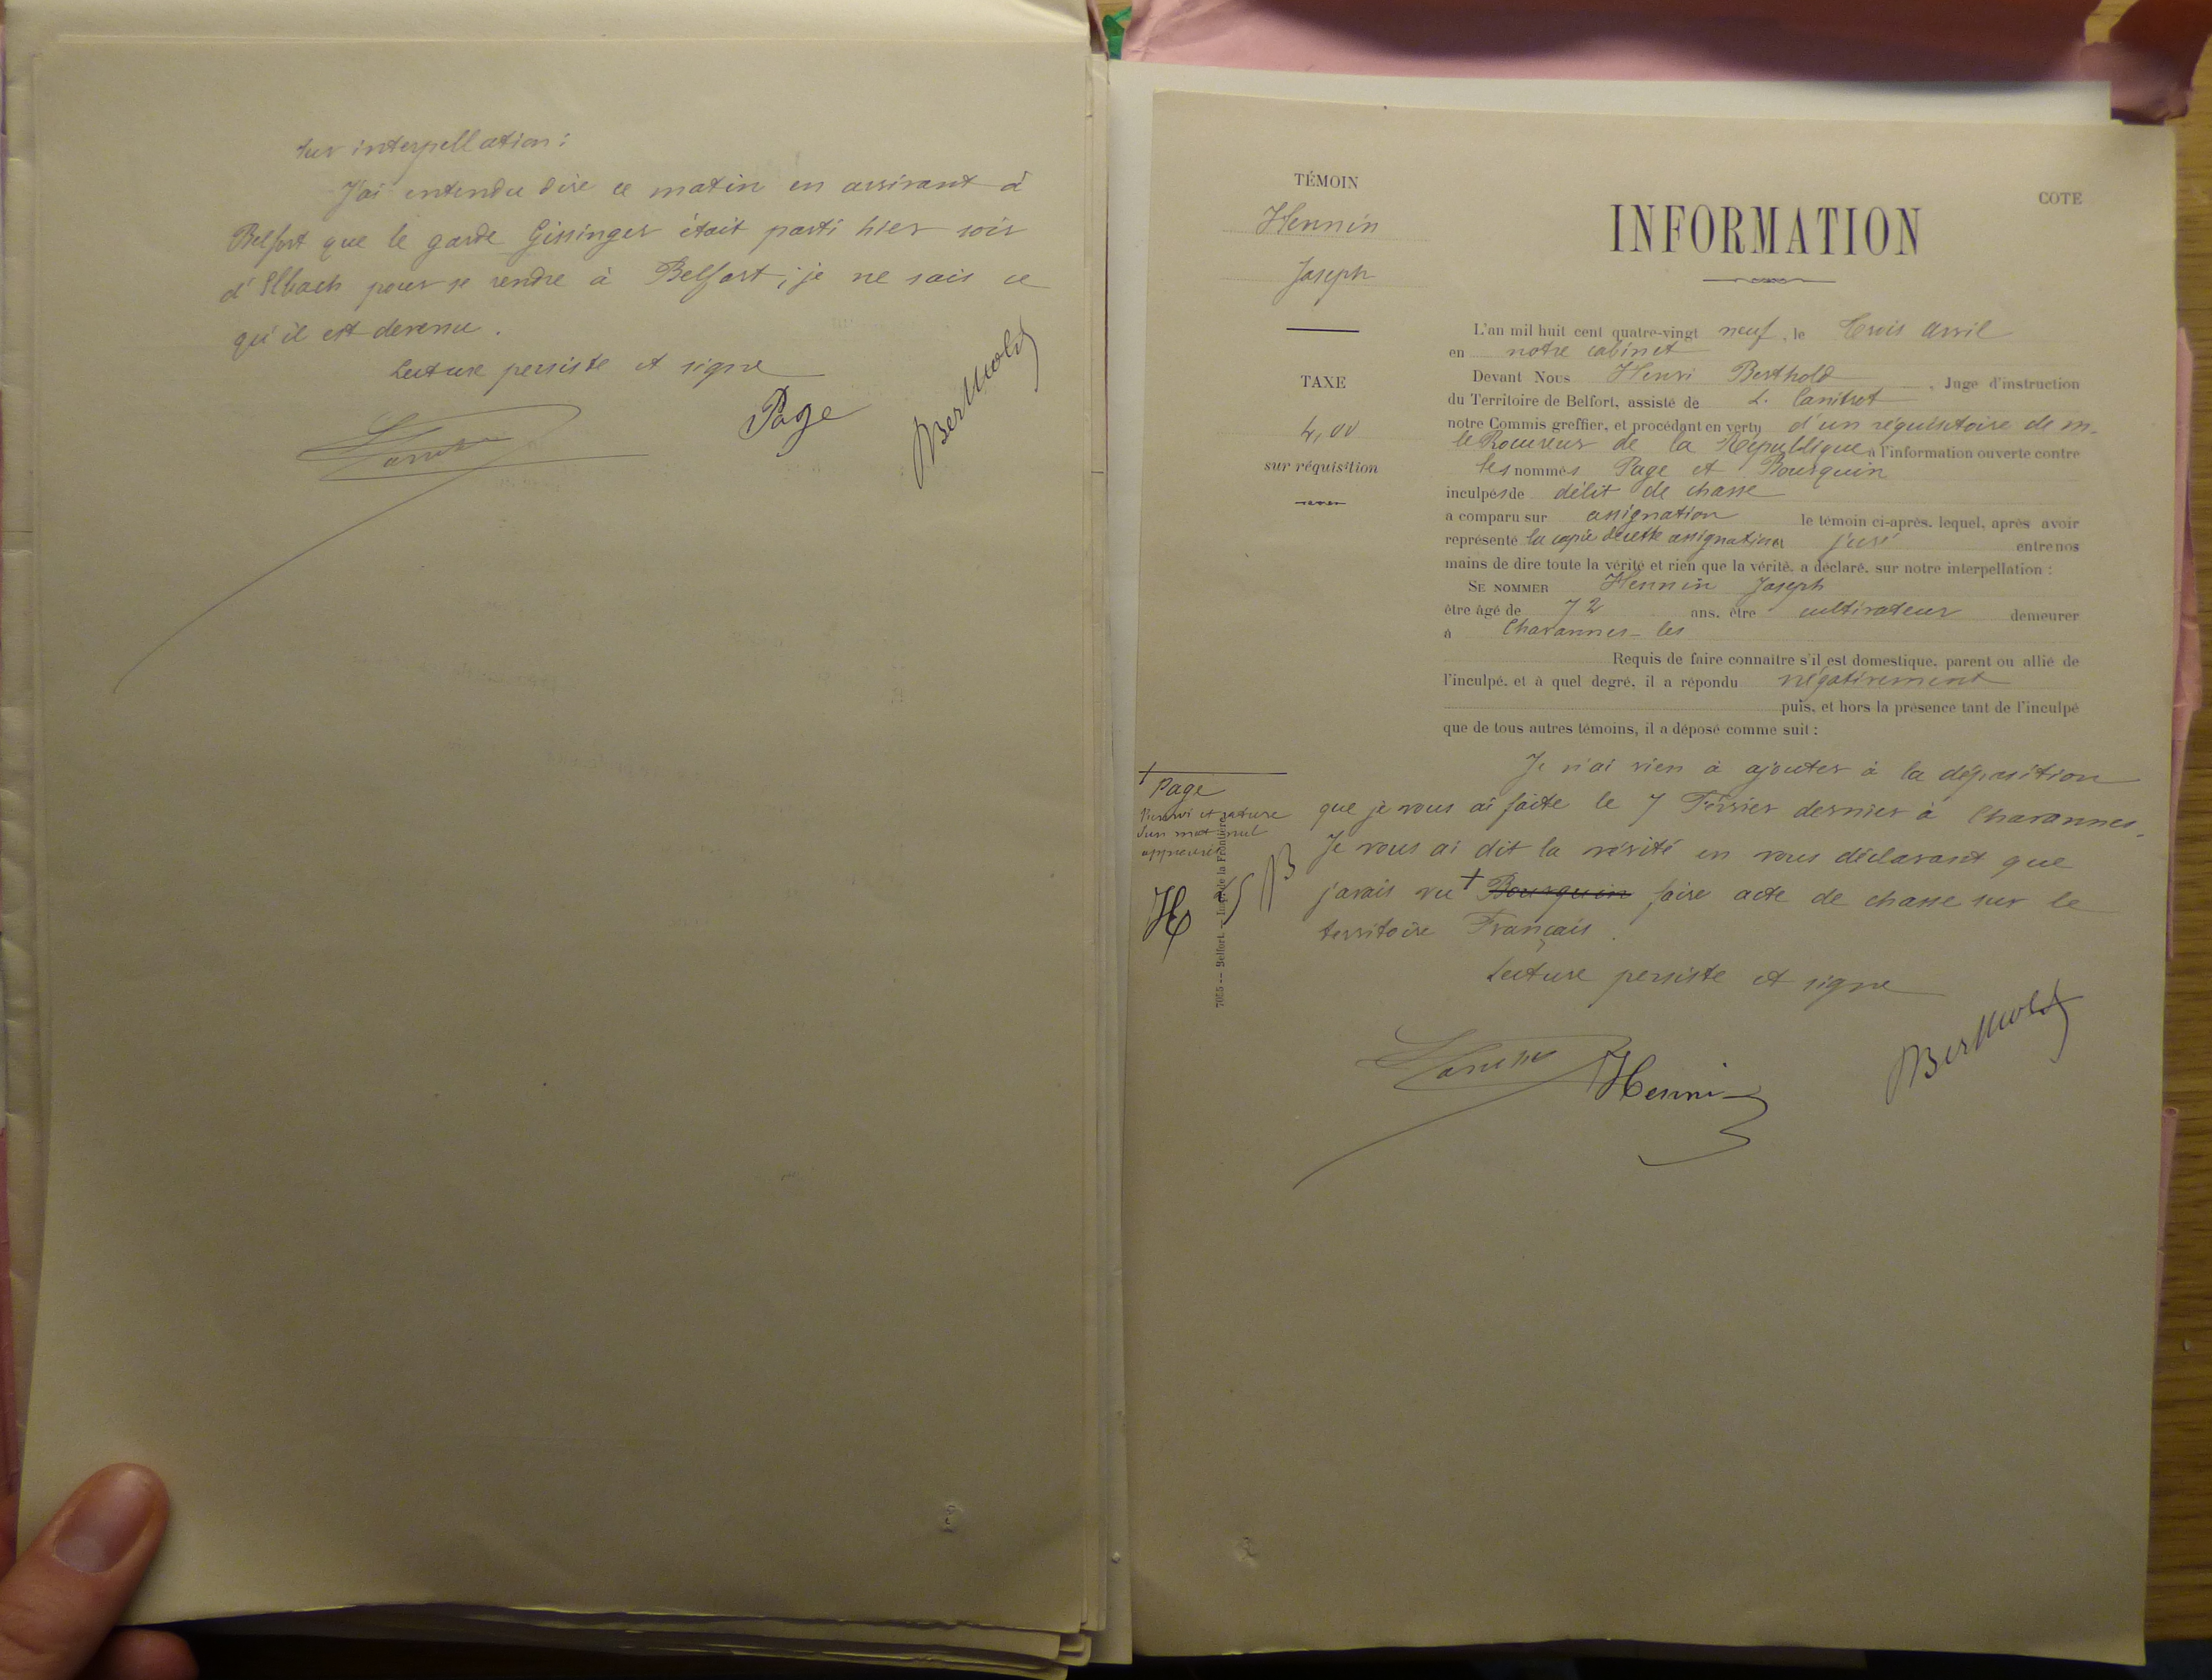 Sur interpellation :
J'ai entendu dire ce matin en arrivant à
Belfort que le garde Gissinger était parti hier soir
d'Elbach pour se rendre à Belfort ; je ne sais ce
qu'il est devenu .
Lecture persiste et signe
Page
Berthold
TÉMOIN
Hennin
Joseph
TAXE
4,00
sur réquisition
COTE
INFORMATION
L'an mil huit cent quatre-vingt neuf , le trois avril
en notre cabinet
Devant Nous Henri Berthold , Juge d'instruction
du Territoire de Belfort, assisté de L. Canitrot
notre Commis greffier, et procédant en vertu d'un réquisitoire de M.
le Procureur de la République à l'information ouverte contre
les nommés Page et Bourquin
inculpés de délit de chasse
a comparu sur assignation le témoin ci-après, lequel, après avoir
représenté la copie de cette assignation et juré entre nos
mains de dire toute la vérité et rien que la vérité, a déclaré, sur notre interpellation :
SE NOMMER Hennin Joseph
être âgé de 72 ans, être cultivateur demeurer
à Chavannes-les
Requis de faire connaître s'il est domestique, parent ou allié de
l'inculpé, et à quel degré, il a répondu négativement
puis, et hors la présence tant de l'inculpé
que de tous autres témoins, il a déposé comme suit :
Je n'ai rien à ajouter à la déposition
que je vous ai faite le 7 Février dernier à Chavannes.
Je vous ai dit la vérité en vous déclarant que
j'avais vu + Bourquin faire acte de chasse sur le
territoire Français .
Lecture persiste et signe
+ Page
Renvoi et rature
d'un mot nul
approuvés
H B
7055 -- Belfort. -- Imp. de la Frontière
Hennin
Berthold